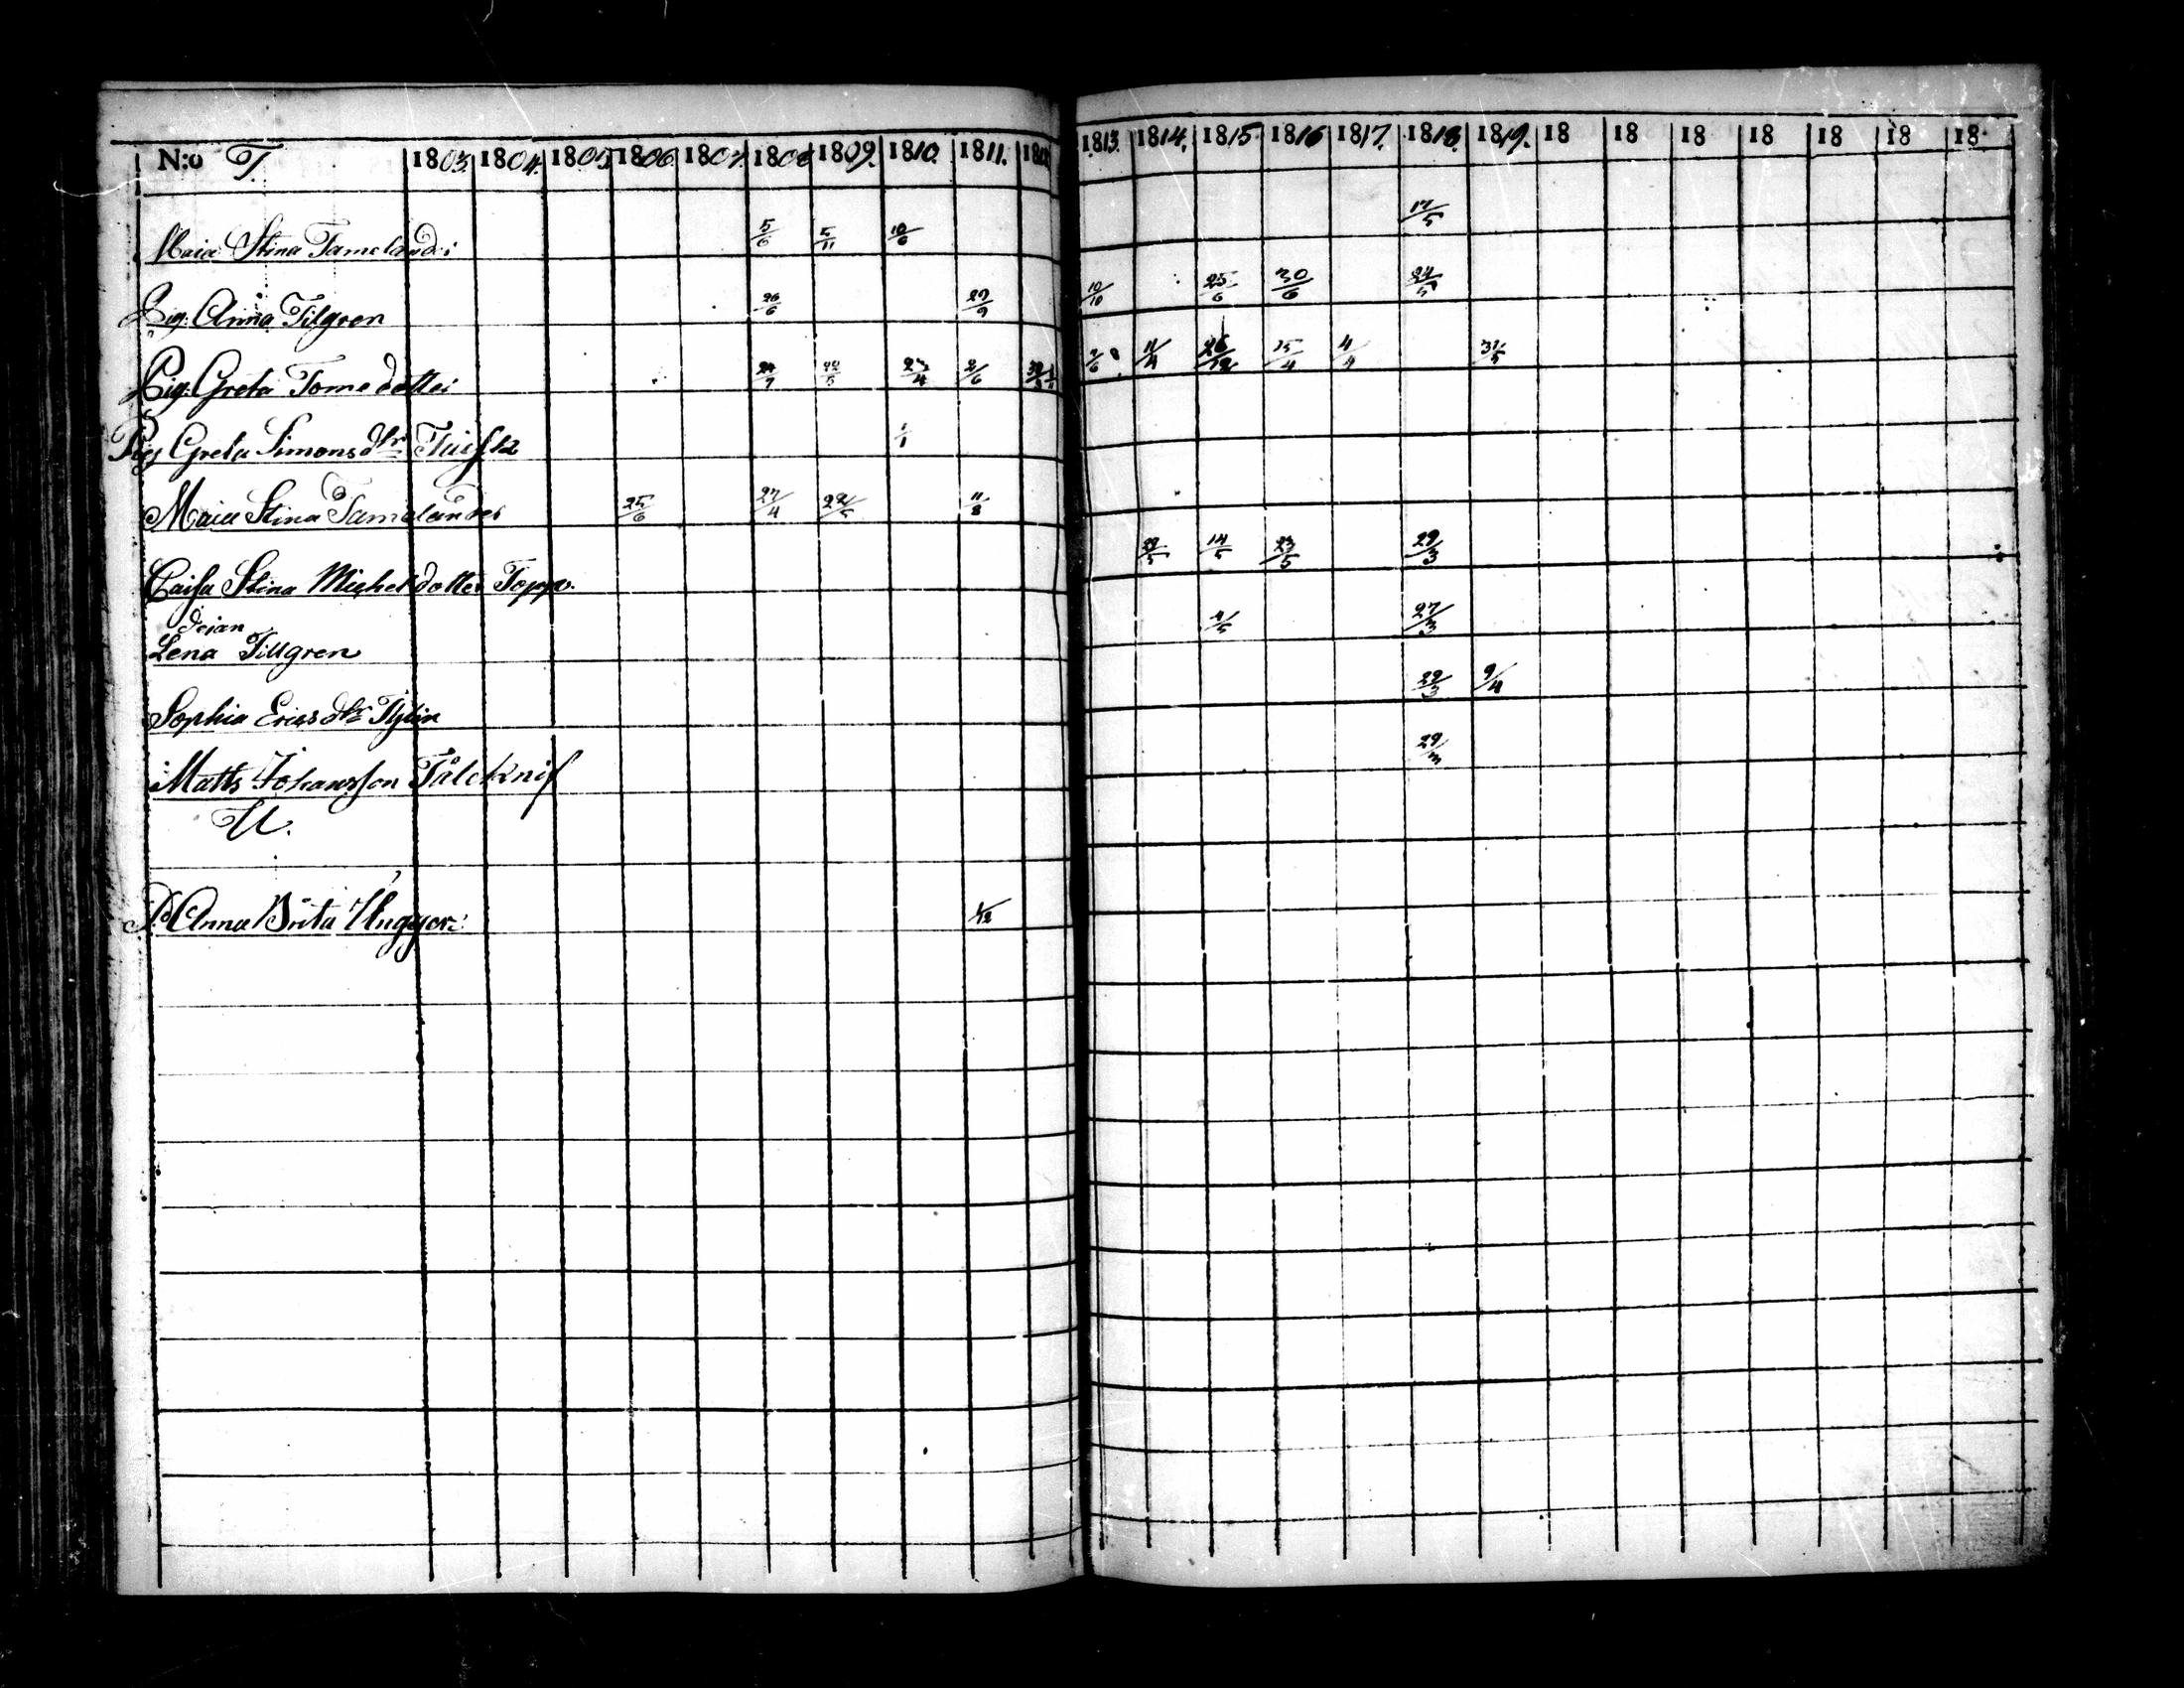 N:o T. 1803. 1804. 1805. 1806. 1807. 1808 1809. 1810. 1811. 1813. 1814. 1815 1816 1817. 1818. 1819. 18 18 18 18 18 18 18
Maia Stina Tamelander 5/6 5/11 10/6 17/5
Pig: Anna Tilgren 26/6 27/9 10/10 25/6 30/6 24/5
Pig: Greta Tomedotter 24/7 22/5 23/4 2/6 11/4 26/12 25/4 4/4 31/5
Pig Greta Simonsdtr 1/1
Maia Stina Tamelander 25/6 27/4 22/5 11/8
Caisa Stina Michelsdotter Topp. 14/5 23/5 29/3
Lena Tillgren 4/5 27/3
Sophia Ericsdtr 29/3 9/4
Matts Johansson Tålcknif 29/3
U.
P. Anna Brita 1/12